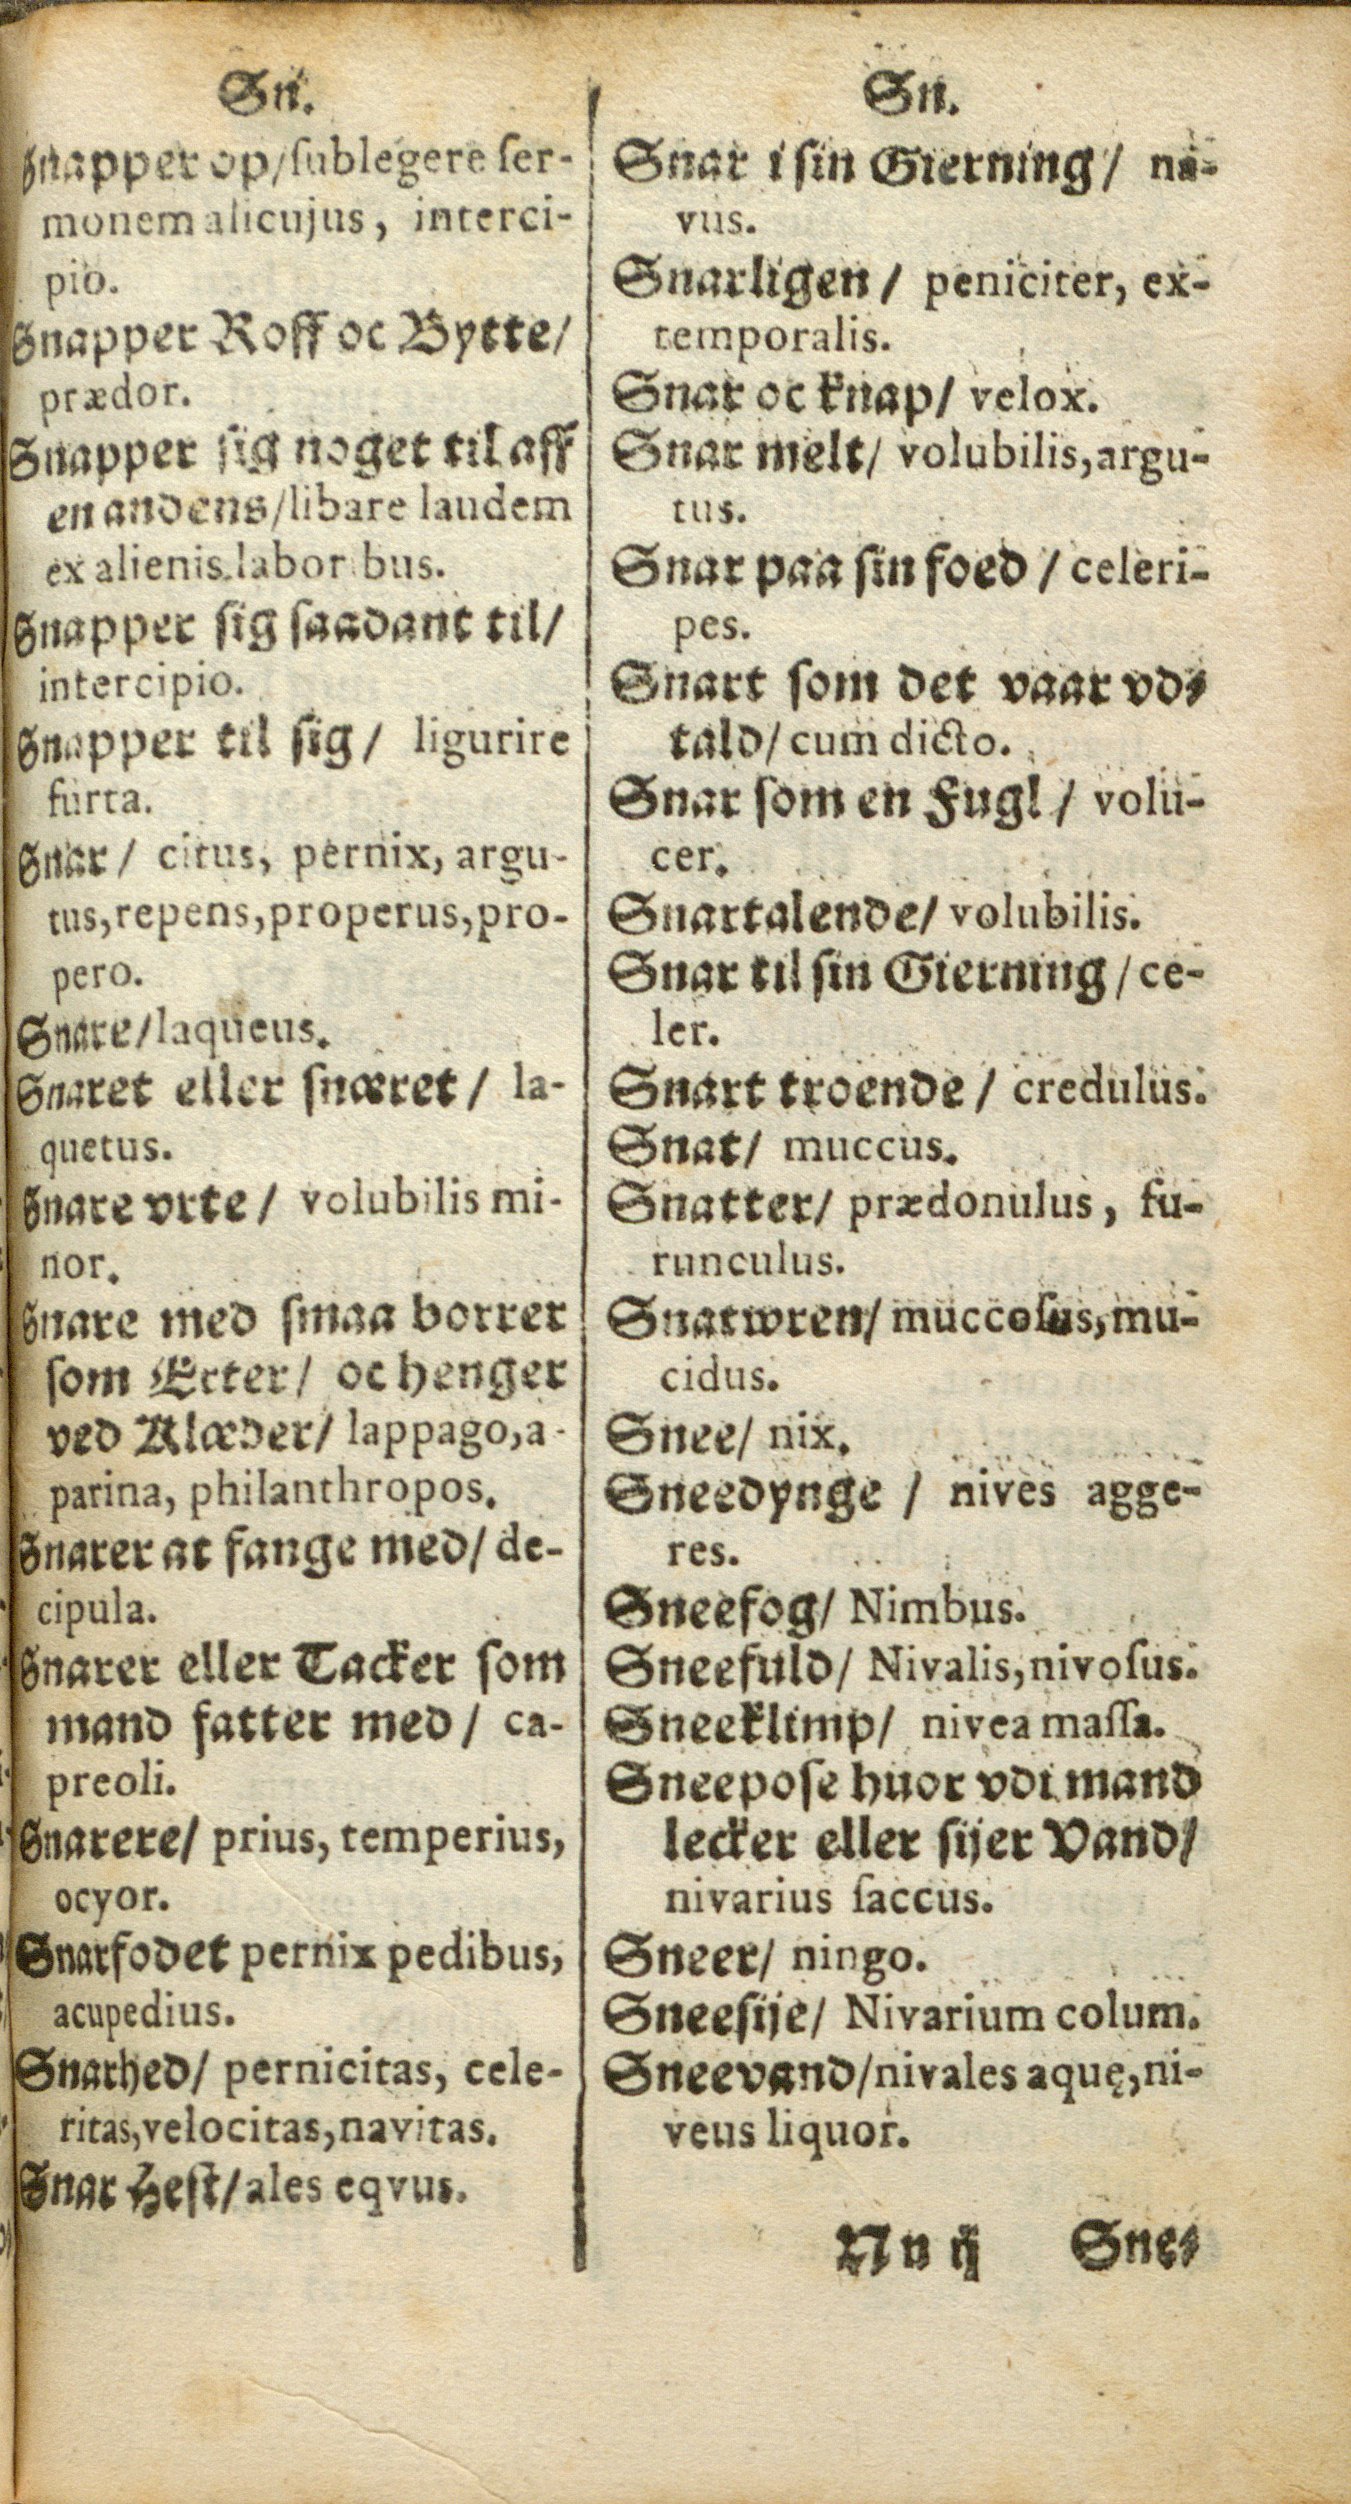 Sn.
Snapper op/ſublegere ſer-
monem alicujus, interci-
pio.
Snapper Roff oc Bytte/
prædor.
Snapper ſig noget til aff
en andens/libare laudem
ex alienis laboribus.
Snapper ſig ſaadant til/
intercipio.
Snapper til ſig/ ligurire
furta.
Snar/ citus, pernix, argu-
tus, repens, properus, pro-
pero.
Snare/laqueus.
Snaret eller ſnæret/ la-
quetus.
Snare vrte/ volubilis mi-
nor.
Snare med ſmaa borrer
ſom Erter/ oc henger
ved Klæder/ lappago, a-
parina, philanthropos.
Snarer at fange med/ de-
cipula.
Snarer eller Tacker ſom
mand fatter med/ ca-
preoli.
Snarere/ prius, temperius,
ocyor.
Snarfodet pernix pedibus,
acupedius.
Snarhed/ pernicitas, cele-
ritas, velocitas, navitas.
Snar Heſt/ales eqvus.
Sn.
Snar i ſin Gierning/ na-
vus.
Snarligen/ peniciter, ex-
temporalis.
Snar oc knap/ velox.
Snar melt/ volubilis, argu-
tus.
Snar paa ſin foed/ celeri-
pes.
Snart ſom det vaar vd-
tald/ cum dicto.
Snar ſom en Fugl/ volu-
cer.
Snartalende/ volubilis.
Snar til ſin Gierning/ ce-
ler.
Snart troende/ credulus.
Snat/ muccus.
Snatter/ prædonulus, fu-
runculus.
Snatwren/ muccoſus, mu-
cidus.
Snee/ nix.
Sneedynge/ nives agge-
res.
Sneefog/ Nimbus.
Sneefuld/ Nivalis, nivoſus.
Sneeklimp/ nivea maſſa.
Sneepoſe huor vdi mand
lecker eller ſijer Vand/
nivarius ſaccus.
Sneer/ ningo.
Sneeſije/ Nivarium colum.
Sneevand/nivales aquę, ni-
veus liquor.
Nn ij Sne-